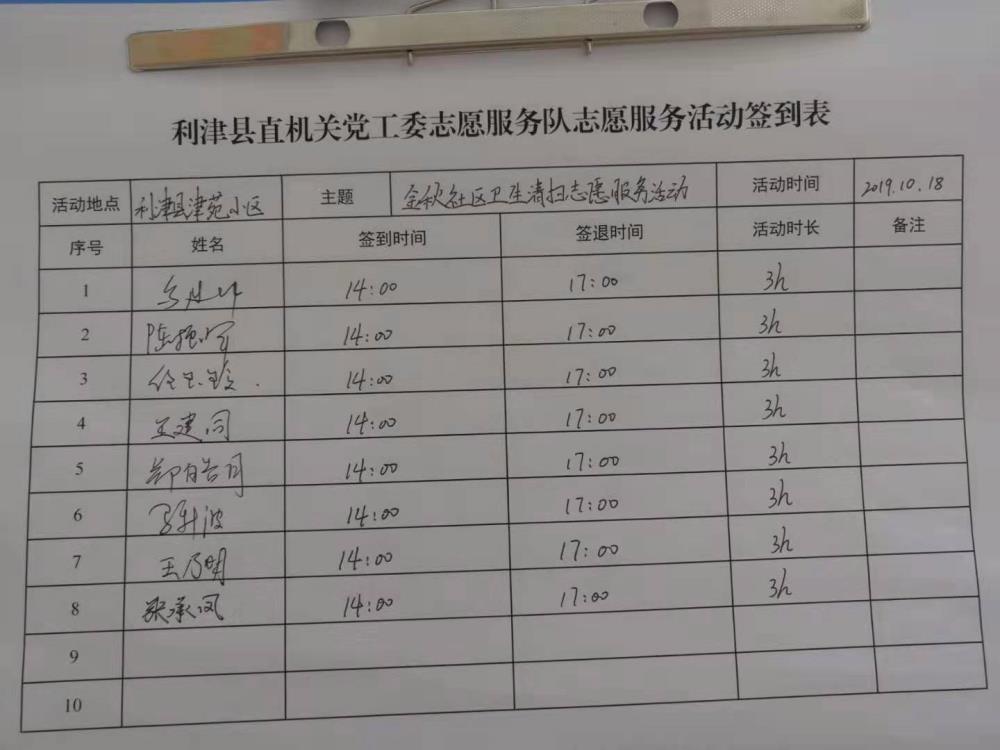 利津县直机关党工委志愿服务队志愿服务活动签到表
活动地点 利津县津苑小区 主题 金秋社区卫生清扫志愿服务活动 活动时间 2019.10.18
序号 姓名 签到时间 签退时间 活动时长 备注
1 14:00 17:00 3h
2 陈振军 14:00 17:00 3h
3 14:00 17:00 3h
4 王建同 14:00 17:00 3h
5 14:00 17:00 3h
6 14:00 17:00 3h
7 王乃明 14:00 17:00 3h
8 梁承凤 14:00 17:00 3h
9
10